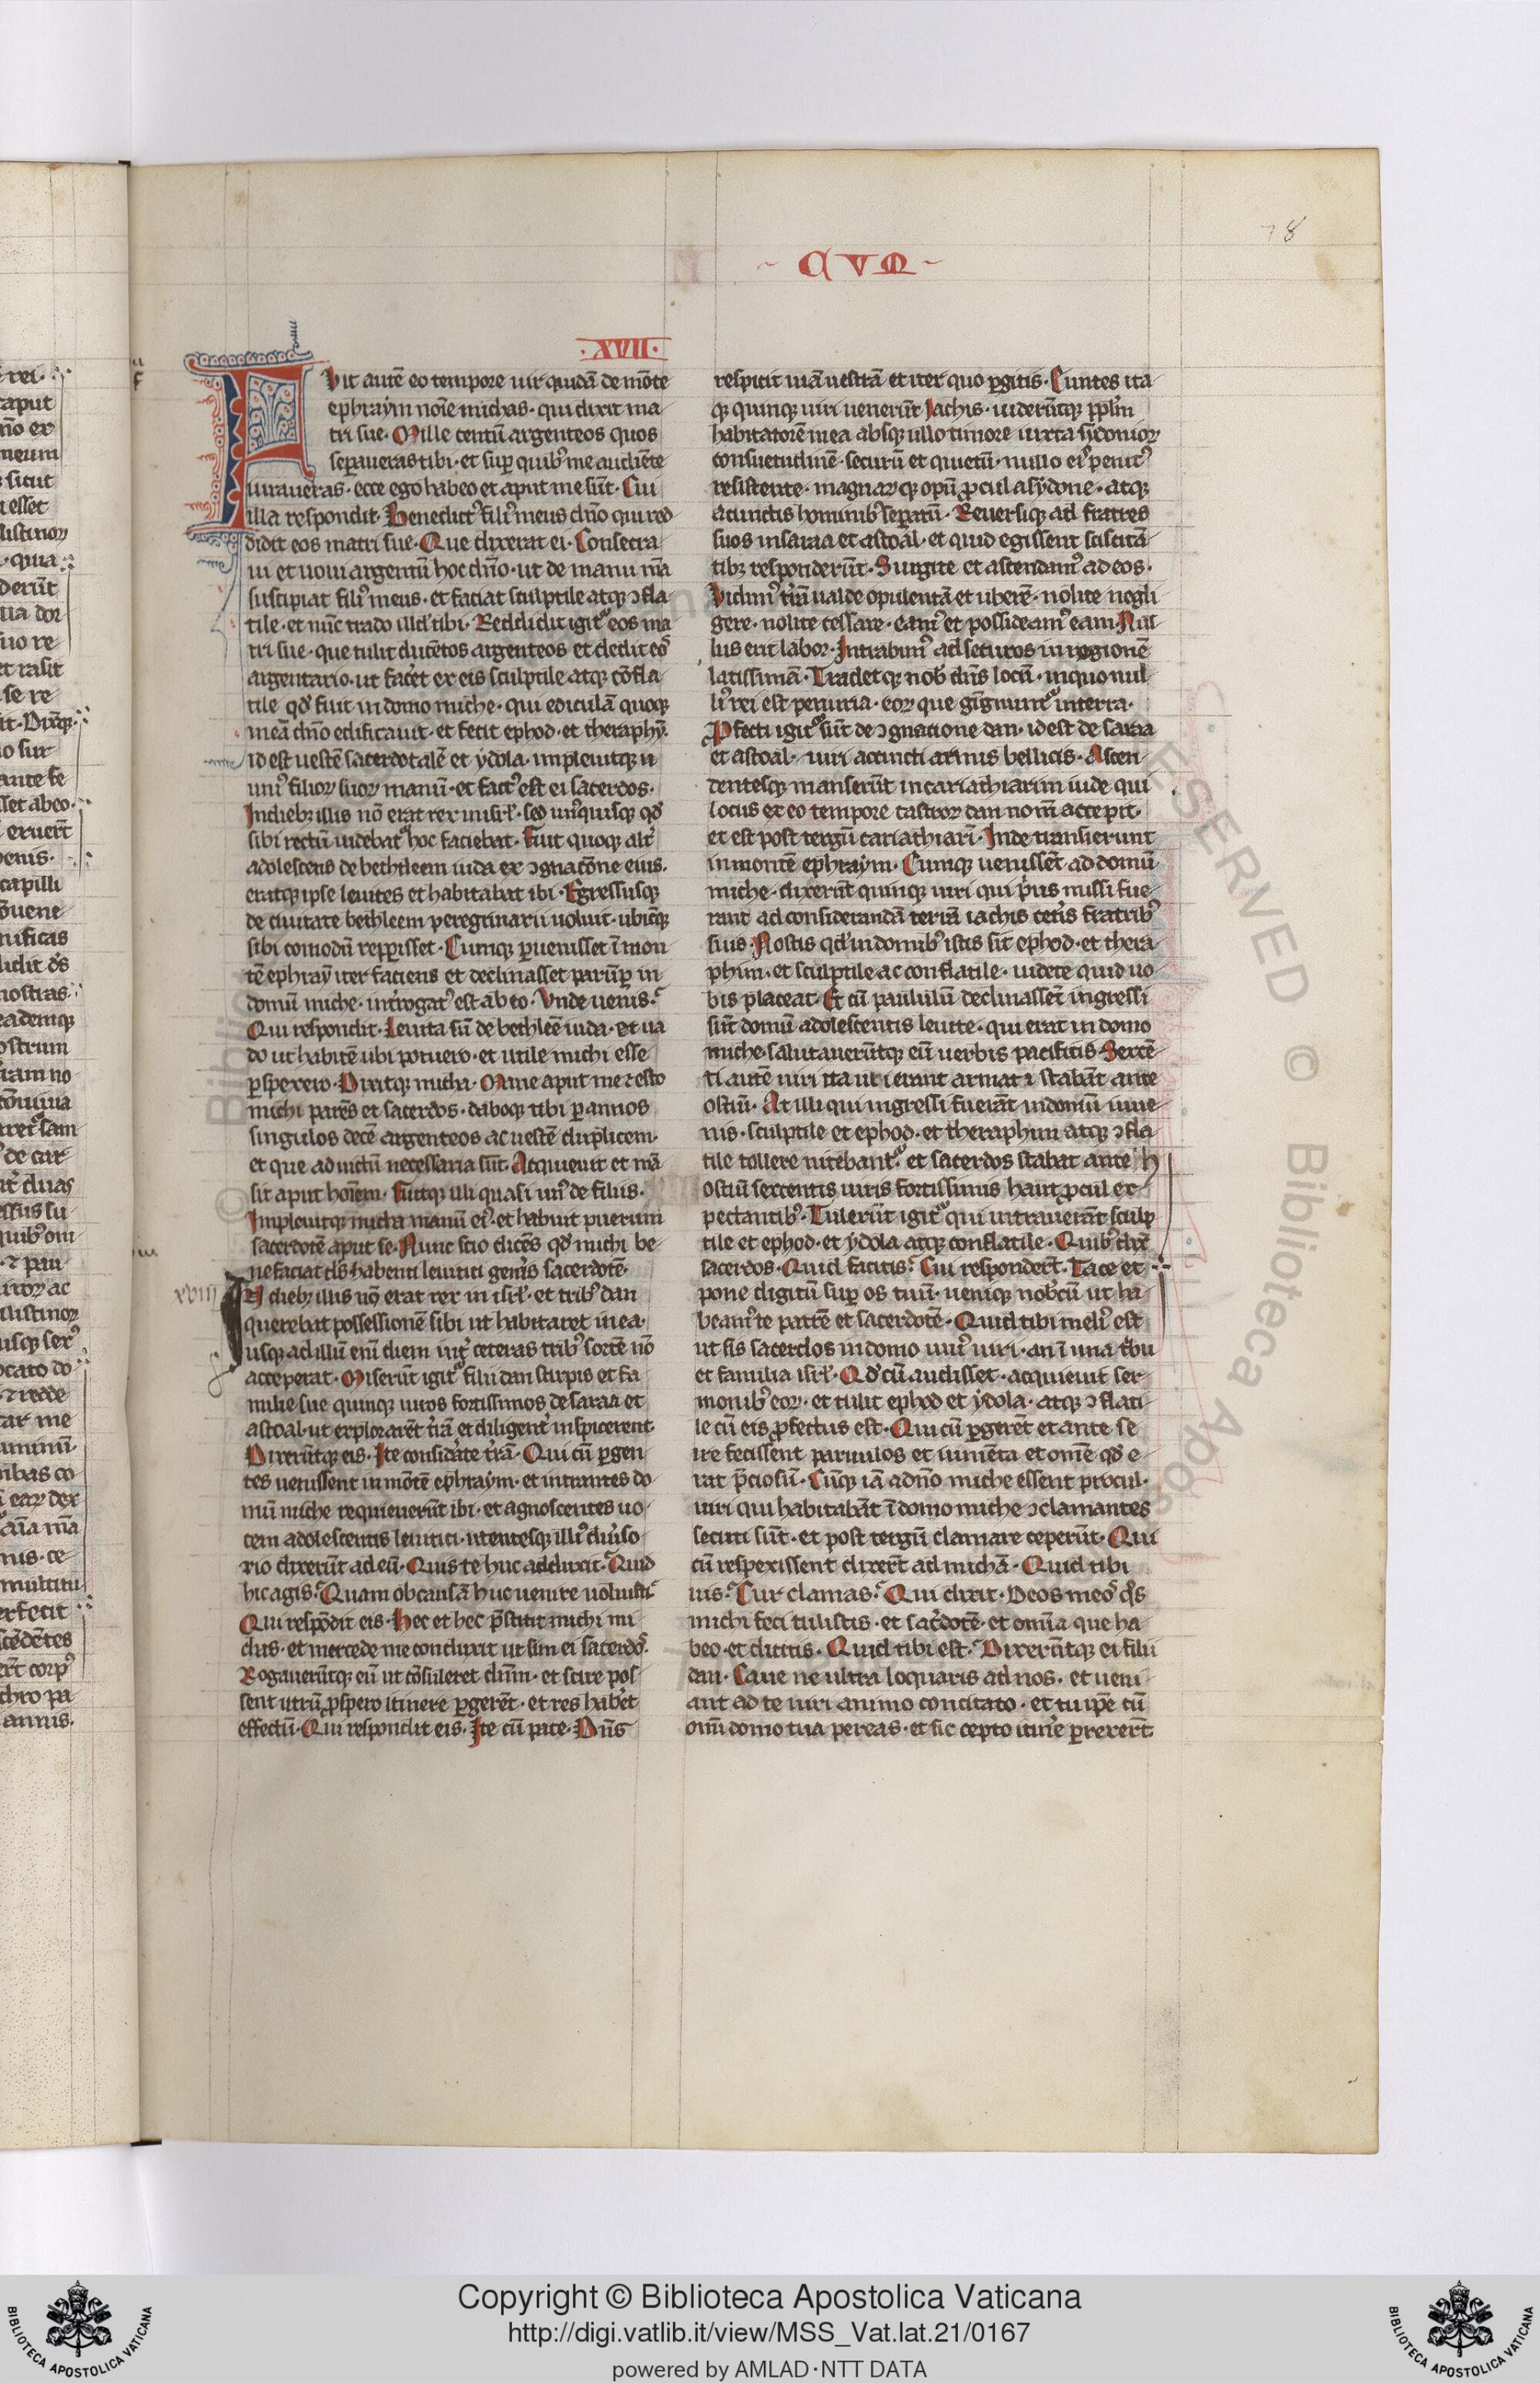 78
CVM
XVII
Fuit autē eo tempore uir quidā de mōte
ephraym noīe michas · qui dixit ma
tri sue · Mille centū argenteos quos
separaueras tibi · et sup quibꝰ me audiēte
iuraueras · ecce ego habeo et aput me sūt · Cui
illa respondit · Benedictꝰ filiꝰ meus dn̄o qui red
didit eos matri sue · Que dixerat ei · Consecra
ui et uoui argentū hoc dn̄o · ut de manu mā
suscipiat filiꝰ meus · et faciat sculptile atqꝫ ꝯfla
tile · et nūc trado illd' tibi · Reddidit igitͬ eos ma
tri sue · que tulit ducētos argenteos et dedit eoˢ
argentario · ut fac̓et ex eis sculptile atqꝫ cōfla
tile qd' fuit in domo miche · qui ediculā quoqꝫ
in eā dn̄o edificauit · et fecit ephod · et theraphȳ ·
id est uestē sacerdotalē et ydola · impleuitqꝫ u
niꝰ filioꝝ suoꝝ manū · et factꝰ est ei sacerdos ·
In diebꝫ illis nō erat rex in isrl' · sed unꝰquisqꝫ qd'
sibi rectū uidebatͬ hoc faciebat · Fuit quoqꝫ alt̓
adolescens de bethleem iuda ex ꝯgnacōne eius ·
eratqꝫ ipse leuites et habitabat ibi · Egressusqꝫ
de ciuitate bethleem peregrinari uoluit · ubicūqꝫ
sibi comodū repperisset · Cumqꝫ ꝑuenisset ī mon
tē ephray iter faciens et declinasset parūꝑ in
domū miche · int̓rogatꝰ est ab eo · Vnde uenis ·
Qui respondit · Leuita sū de bethleē iuda · et ua
do ut habitē ubi potuero · et utile michi esse
ꝑspexero · Dixitqꝫ micha · Mane aput me ⁊ esto
michi parēs et sacerdos · daboqꝫ tibi ꝑ annos
singulos decē argenteos ac uestē duplicem ·
et que ad uictū necessaria sūt · Acquieuit et mā
sit aput hoīem · Fuitqꝫ illi quasi unꝰ de filiis ·
Impleuitqꝫ micha manū eiꝰ · et habuit puerum
sacerdotē aput se · Nunc scio dicēs qd' michi be
nefaciat ds̄ habenti leuitici gen̓is sacerdotē ·
xviii
In diebꝫ illis nō erat rex in isrl' · et tribꝰ dan
querebat possessionē sibi ut habitaret in ea ·
usqꝫ ad illū eni diem int̓ ceteras tribꝰ sortē nō
acceperat · Miserūt igitͬ filii dan stirpis et fa
milie sue quinqꝫ uiros fortissimos de saraa et
astoal · ut explorarēt t̓rā et diligent̓ inspicerent ·
Dixerūtqꝫ eis · Ite consid̓ate t̓rā · Qui cū ꝑgen
tes uenissent in mōtē ephraym · et intrantes do
mū miche requieuerūt ibi · et agnoscentes uo
cem adolescentis leuitici · utentesqꝫ illiꝰ diu̓so
rio dixerūt ad eū · Quis te huc adduxit · Quid
hic agis · Quam ob causā huc uenire uoluisti ·
Qui respōdit eis · Hec et hec p̄stitit michi mi
chas · et mercede me conduxit ut sim ei sacerdoˢ ·
Rogauerūtqꝫ eū ut cōsuleret dnm̄ · et scire pos
sent utrū ꝓspero itinere ꝑgerēt · et res hab̓et
effectū · Qui respondit eis · Ite cū pace · Dn̄s
respicit uiā uestrā et iter quo ꝑgitis · Euntes ita
qꝫ quinqꝫ uiri uenerūt lachis · uiderūtqꝫ ppl'm
habitatorē in ea absqꝫ ullo timore iuxta sydonioꝝ
consuetudinē · securū et quietū · nullo eiˢ penitꝰ
resistente · magnaꝝqꝫ opū ꝓcul a sydone · atqꝫ
a cunctis hominibꝰ separatū · Reuersiqꝫ ad fratres
suos in saraa et astoal · et quid egissent sciscitā
tibꝫ responderūt · Surgite et ascendamꝰ ad eos ·
Vidimꝰ t̓rā ualde opulentā et uberē · nolite negli
gere · nolite cessare · eamꝰ et possideamꝰ eam · Nul
lus erit labor · Intrabimꝰ ad securos in regionē
latissimā · Tradetqꝫ nob̓ dn̄s locū · in quo nul
liꝰ rei est penuria · eoꝝ que gignuntͬ in terra ·
Pfecti igitͬ sūt de ꝯgnacione dan · id est de saraa
et astoal · uiri accincti armis bellicis · Ascen
dentesqꝫ manserūt in cariathiarim iude qui
locus ex eo tempore castroꝝ dan nom̄ accepit ·
et est post tergū cariathiari · Inde transierunt
in montē ephraym · Cumqꝫ uenissēt ad domū
miche · dixerūt quinqꝫ uiri qui p̓us missi fue
rant ad considerandā terrā lachis cet̓is fratribꝰ
suis · Nostis qd' in domibꝰ istis sit ephod · et thera
phim · et sculptile ac conflatile · uidete quid uo
bis placeat · Et cū paululū declinassēt ingressi
sūt domū adolescentis leuite · qui erat in domo
miche · salutauerūtqꝫ eū uerbis pacificis · Sexcē
ti autē uiri ita ut erant armati stabāt ante
ostiū · At illi qui ingressi fuerāt in domū iuue
nis · sculptile et ephod · et theraphim atqꝫ ꝯfla
tile tollere nitebantͬ · et sacerdos stabat ante
ostiū sexcentis uiris fortissimis haut ꝓcul ex
pectantibꝰ · Tulerūt igitͬ qui intrauerāt sculp
tile et ephod · et ydola atqꝫ conflatile · Quibꝰ dix̄
sacerdos · Quid facitis · Cui respondert̄ · Tace et
pone digitū sup os tuū · ueniqꝫ nob̓cū ut ha
beamꝰ te patrē et sacerdotē · Quid tibi meliꝰ est
ut sis sacerdos in domo uniꝰ uiri · an ī una t̓bu
et familia isrl' · Qd' cū audisset · acquieuit ser
monibꝰ eoꝝ · et tulit ephod et ydola · atqꝫ ꝯflati
le cū eis ꝓfectus est · Qui cū ꝑgerēt et ante se
ire fecissent paruulos et iumēta et omē qd' e
rat p̄ciosū · Cūqꝫ iā a domo miche essent procul ·
uiri qui habitabāt ī domo miche ꝯclamantes
secuti sūt · et post tergū clamare ceperūt · Qui
cū respexissent dixert̄ ad michā · Quid tibi
uis · Cur clamas · Qui dixit · Deos meoˢ qˢ
michi feci tulistis · et sac̓dotē · et omīa que ha
beo · et dicitis · Quid tibi est · Dixerūtqꝫ ei filii
dan · Caue ne ultra loquaris ad nos · et ueni
ant ad te uiri animo concitato · et tu ipē cū
om̄i domo tua pereas · et sic cepto itin̓e ꝑrexert̄
Copyright © Biblioteca Apostolica Vaticana
http://digi.vatlib.it/view/MSS_Vat.lat.21/0167
powered by AMLAD·NTT DATA
BIBLIOTECA APOSTOLICA VATICANA
BIBLIOTECA APOSTOLICA VATICANA